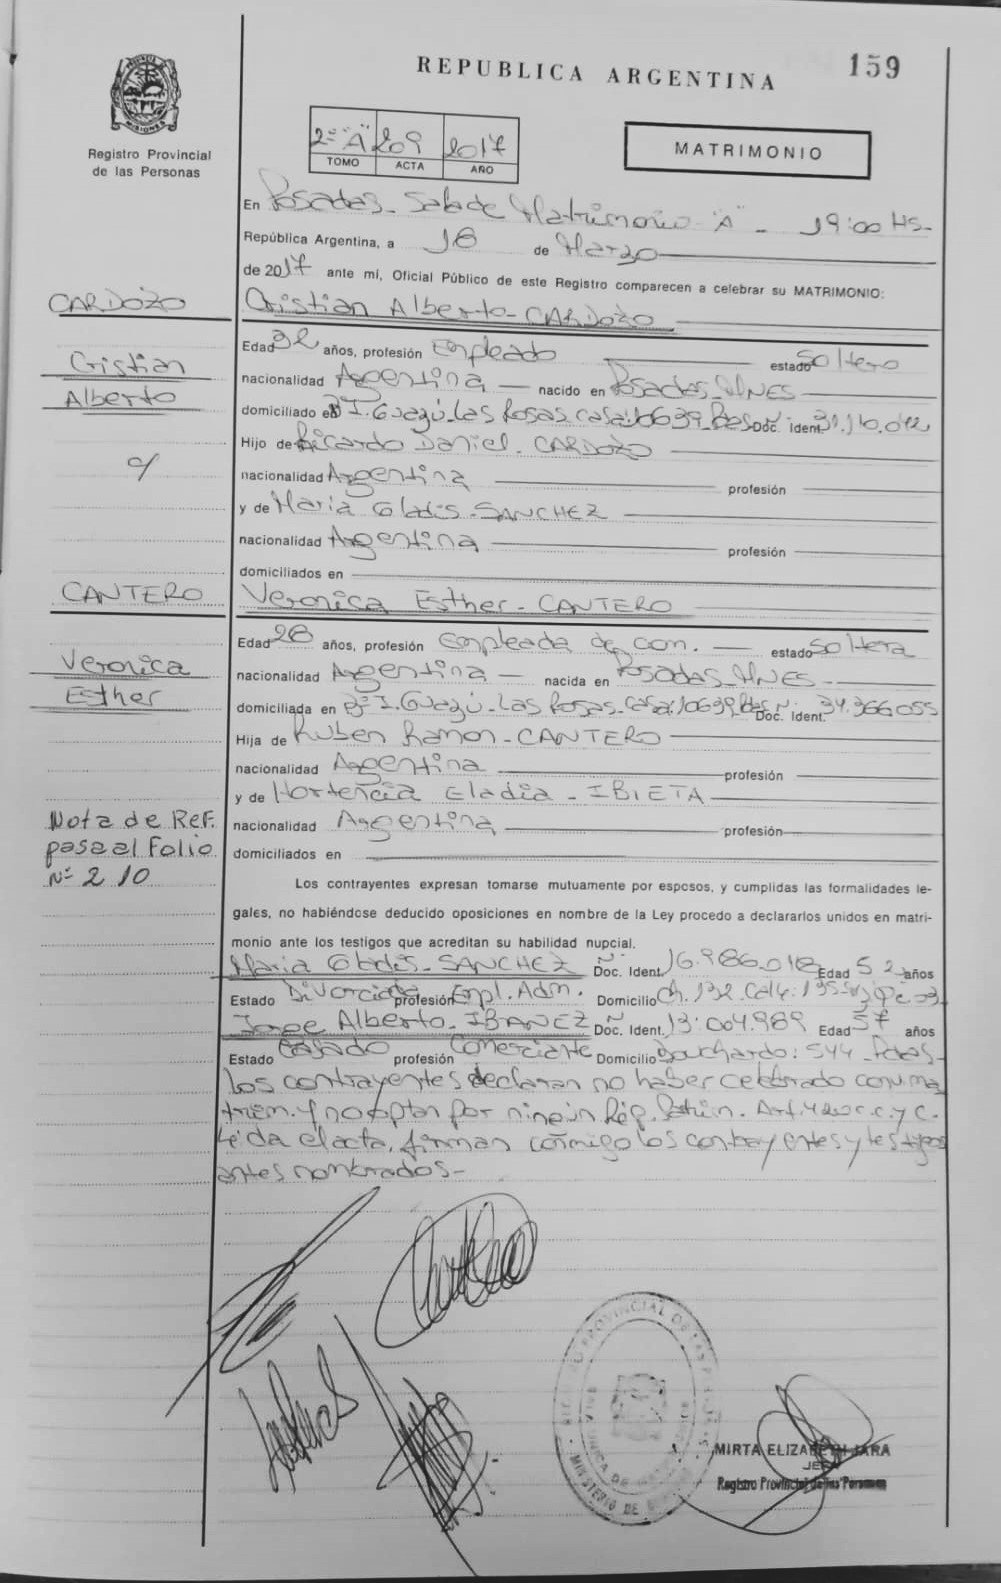 REPUBLICA ARGENTINA
159
PROVINCIA DE MISIONES
Registro Provincial
de las Personas
2º "A" 209 2017
TOMO ACTA AÑO
MATRIMONIO
En Posadas - Sala de Matrimonio "A" - 19:00 HS-
República Argentina, a 18 de Marzo
de 2017 ante mi, Oficial Público de este Registro comparecen a celebrar su MATRIMONIO:
CARDOZO
Cristian Alberto - CARDOZO
Cristian
Alberto
c/
Edad 32 años, profesión Empleado estado Soltero
nacionalidad Argentina - nacido en Posadas - Mnes -
domiciliado en Bº I. Guazú - Las Rosas - casa: 10639 - Pdas - Doc. Ident. 31.110.012
Hijo de Ricardo Daniel - CARDOZO
nacionalidad Argentina profesión
y de Maria Gladis - SANCHEZ
nacionalidad Argentina profesión
domiciliados en
CANTERO
Veronica Esther - CANTERO
Veronica
Esther
Edad 28 años, profesión Empleada de com. - estado Soltera
nacionalidad Argentina - nacida en Posadas - Mnes -
domiciliada en Bº I. Guazú - Las Rosas - casa: 10639 - Pdas - Doc. Ident. 34.366.055
Hija de Ruben Ramon - CANTERO
nacionalidad Argentina profesión
y de Hortencia Eladia - IBIETA
nacionalidad Argentina profesión
domiciliados en
Nota de Ref.
pasa al Folio
Nº 210
Los contrayentes expresan tomarse mutuamente por esposos, y cumplidas las formalidades le-
gales, no habiéndose deducido oposiciones en nombre de la Ley procedo a declararlos unidos en matri-
monio ante los testigos que acreditan su habilidad nupcial.
Maria Gladis - SANCHEZ Doc. Ident. 16.986.018 Edad 52 años
Estado Divorciada profesión Empl. Adm. Domicilio Ch. 132 - Calle: 135
Jorge Alberto - IBAÑEZ Doc. Ident. 13.004.989 Edad 57 años
Estado Casado profesión Comerciante Domicilio Bouchardo: 544 - Pdas -
Los contrayentes declaran no haber celebrado conv. ma-
trim. y no optan por ningún Rég. Patrim. Art. 420 c.c. y c.
Leída el acta, firman conmigo los contrayentes y testigos
antes nombrados -
REGISTRO PROVINCIAL DE LAS PERSONAS
MINISTERIO DE GOBIERNO
MIRTA ELIZABETH JARA
JEFA
Registro Provincial de las Personas